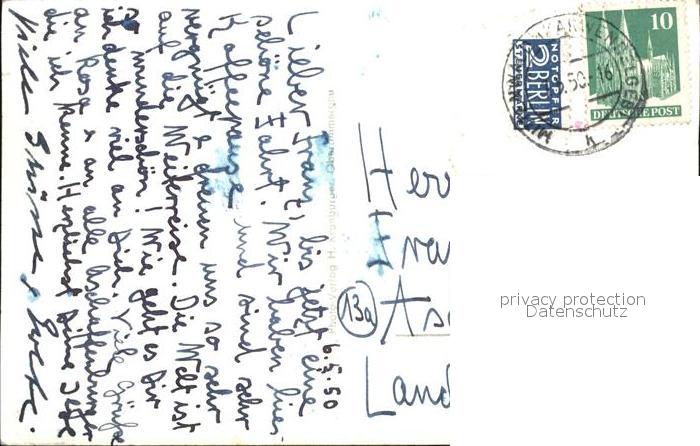 6.5.50
Lieber Franz, bis jetzt eine
schöne Fahrt. Wir haben hier
Kaffeepause und sind sehr
vergnügt & freuen uns so sehr
auf die Weiterreise. Die Welt ist
so wunderschön! Wie geht es Dir
ich denke viel an Dich. Viele Grüße
an Rosa & an alle Aschaffenburger
die ich kenne. Herzlichst Deine
Viele Grüsse
Verlag H. Kronburger, Oberammergau
Herr
Fra
13a
As
Land
NOTOPFER
2 BERLIN
STEUERMARKE
10
DEUTSCHE POST
50.-16
privacy protection
Datenschutz